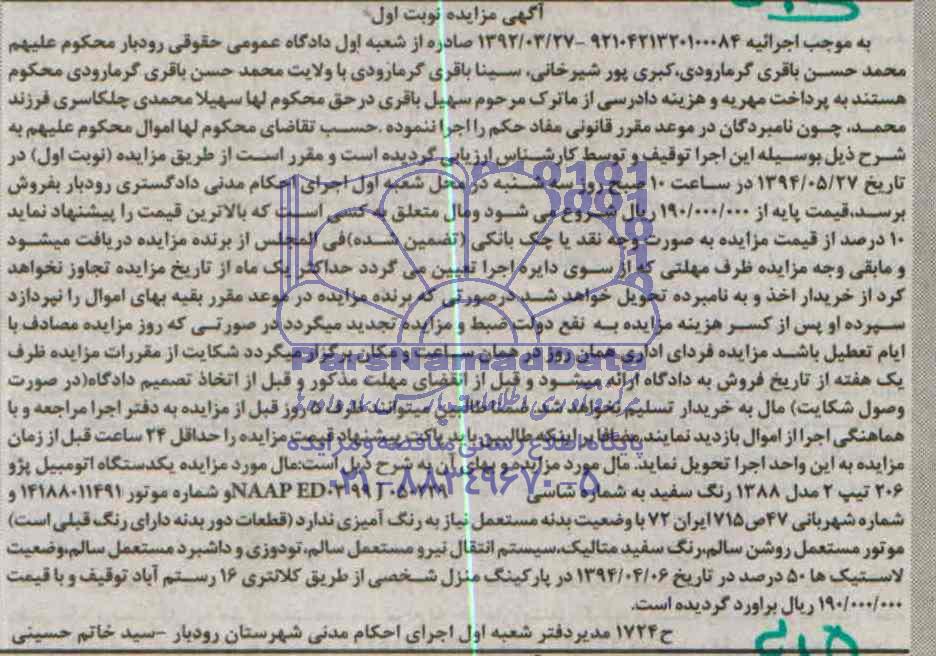 آگهی مزایده نوبت اول
به موجب اجرائیه ۹۲۱۰۴۲۱۳۲۰۱۰۰۰۸۴ -۱۳۹۲/۰۳/۲۷ صادره از شعبه اول دادگاه عمومی حقوقی رودبار محکوم علیهم
محمد حسن باقری گرمارودی،کبری پور شیرخانی، سینا باقری گرمارودی با ولایت محمد حسن باقری گرمارودی محکوم
هستند به پرداخت مهریه و هزینه دادرسی از ماترک مرحوم سهیل باقری در حق محکوم لها سهیلا محمدی چلکاسری فرزند
محمد، چون نامبردگان در موعد مقرر قانونی مفاد حکم را اجرا ننموده .حسب تقاضای محکوم لها اموال محکوم علیهم به
شرح ذیل بوسیله این اجرا توقیف و توسط کارشناس ارزیابی گردیده است و مقرر است از طریق مزایده (نوبت اول) در
تاریخ ۱۳۹۴/۰۵/۲۷ در ساعت ۱۰ صبح روز سه شنبه در محل شعبه اول اجرای احکام مدنی دادگستری رودبار بفروش
برسد،قیمت پایه از ۱۹۰/۰۰۰/۰۰۰ ریال شروع می شود ومال متعلق به کسی است که بالاترین قیمت را پیشنهاد نماید
۱۰ درصد از قیمت مزایده به صورت وجه نقد یا چک بانکی (تضمین شده)فی المجلس از برنده مزایده دریافت میشود
و مابقی وجه مزایده ظرف مهلتی که از سوی دایره اجرا تعیین می گردد حداکثر یک ماه از تاریخ مزایده تجاوز نخواهد
کرد از خریدار اخذ و به نامبرده تحویل خواهد شد درصورتی که برنده مزایده در موعد مقرر بقیه بهای اموال را نپردازد
سپرده او پس از کسر هزینه مزایده به نفع دولت ضبط و مزایده تجدید میگردد در صورتی که روز مزایده مصادف با
ایام تعطیل باشد مزایده فردای اداری همان روز در همان ساعت و مکان برگزار میگردد شکایت از مقررات مزایده ظرف
یک هفته از تاریخ فروش به دادگاه ارائه میشود و قبل از انقضای مهلت مذکور و قبل از اتخاذ تصمیم دادگاه(در صورت
وصول شکایت) مال به خریدار تسلیم نخواهد شد ضمنا طالبین میتوانند ظرف ۵ روز قبل از مزایده به دفتر اجرا مراجعه و با
هماهنگی اجرا از اموال بازدید نمایند مضافا بر اینکه طالبین باید پاکت پیشنهاد قیمت مزایده را حداقل ۲۴ ساعت قبل از زمان
مزایده به این واحد اجرا تحویل نماید. مال مورد مزایده و بهای آن به شرح ذیل است:مال مورد مزایده یکدستگاه اتومبیل پژو
۲۰۶ تیپ ۲ مدل ۱۳۸۸ رنگ سفید به شماره شاسی NAAP ED و شماره موتور ۱۴۱۸۸۰۱۱۴۹۱ و
شماره شهربانی ۴۷ص۷۱۵ ایران ۷۲ با وضعیت بدنه مستعمل نیاز به رنگ آمیزی ندارد (قطعات دور بدنه دارای رنگ قبلی است)
موتور مستعمل روشن سالم،رنگ سفید متالیک،سیستم انتقال نیرو مستعمل سالم،تودوزی و داشبرد مستعمل سالم،وضعیت
لاستیک ها ۵۰ درصد در تاریخ ۱۳۹۴/۰۴/۰۶ در پارکینگ منزل شخصی از طریق کلانتری ۱۶ رستم آباد توقیف و با قیمت
۱۹۰/۰۰۰/۰۰۰ ریال براورد گردیده است.
ح۱۷۲۴ مدیردفتر شعبه اول اجرای احکام مدنی شهرستان رودبار -سید خاتم حسینی
ParsNamadData
پایگاه اطلاع رسانی مناقصه و مزایده
۰۲۱-۸۸۳۴۹۶۷۰-۵